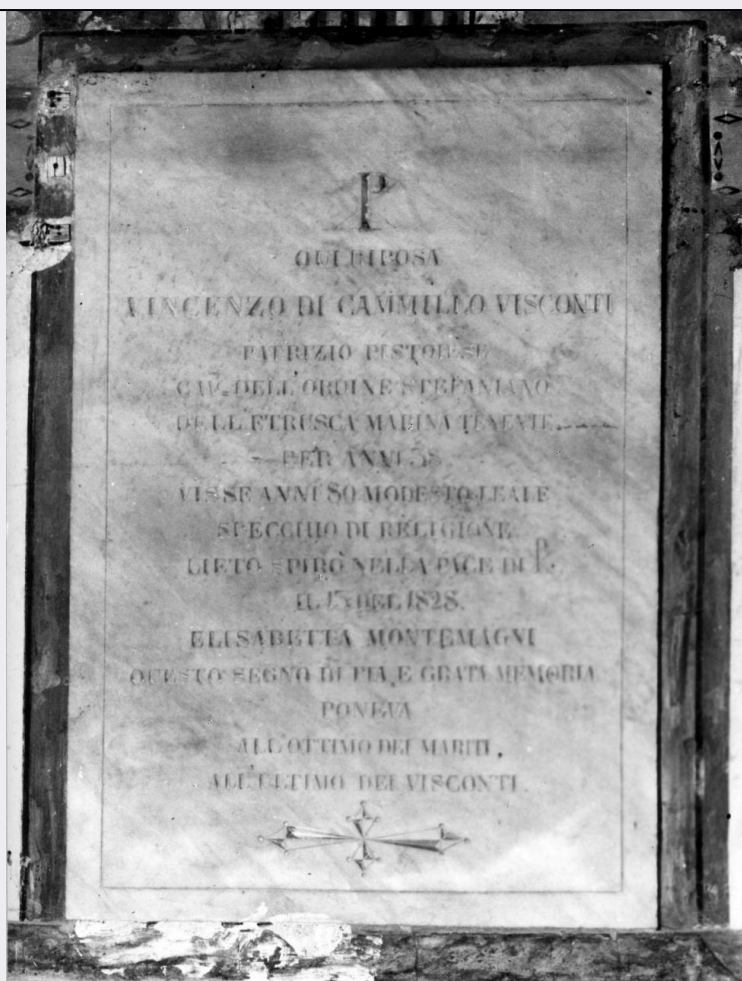 P
QUI RIPOSA
VINCENZO DI CAMMILLO VISCONTI
PATRIZIO PISTOIESE
CAV. DELL'ORDINE STEFANIANO
DELL'ETRUSCA MARINA TENENTE
PER ANNI 38
VISSE ANNI 80 MODESTO LEALE
SPECCHIO DI RELIGIONE
LIETO SPIRÒ NELLA PACE DI P.
IL DEL 1828.
ELISABETTA MONTEMAGNI
QUESTO SEGNO DI PIA, E GRATA MEMORIA
PONEVA
ALL'OTTIMO DEI MARITI.
ALL'ULTIMO DEI VISCONTI.